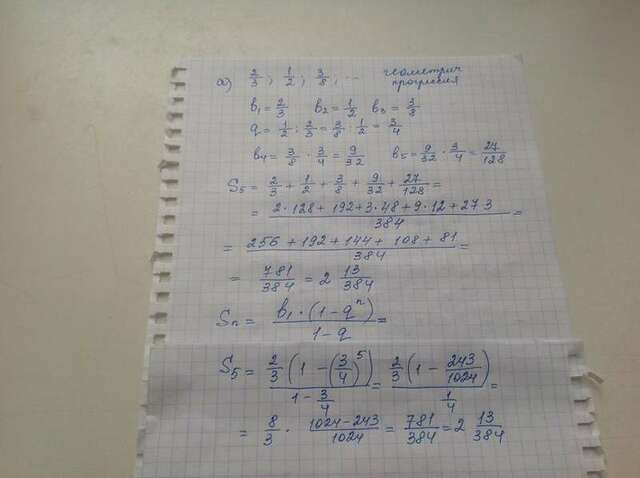 а) 2/3; 1/2; 3/8, ... геометрич прогрессия
b₁ = 2/3 b₂ = 1/2 b₃ = 3/8
q = 1/2 : 2/3 = 3/8 : 1/2 = 3/4
b₄ = 3/8 · 3/4 = 9/32 b₅ = 9/32 · 3/4 = 27/128
S₅ = 2/3 + 1/2 + 3/8 + 9/32 + 27/128 =
= (2·128 + 192 + 3·48 + 9·12 + 27 3)/384 =
= (256 + 192 + 144 + 108 + 81)/384 =
= 781/384 = 2 13/384
Sn = b₁·(1-qⁿ)/(1-q) =
S₅ = 2/3(1-(3/4)⁵)/(1-3/4) = 2/3(1-243/1024)/(1/4) =
= 8/3 · (1024-243)/1024 = 781/384 = 2 13/384